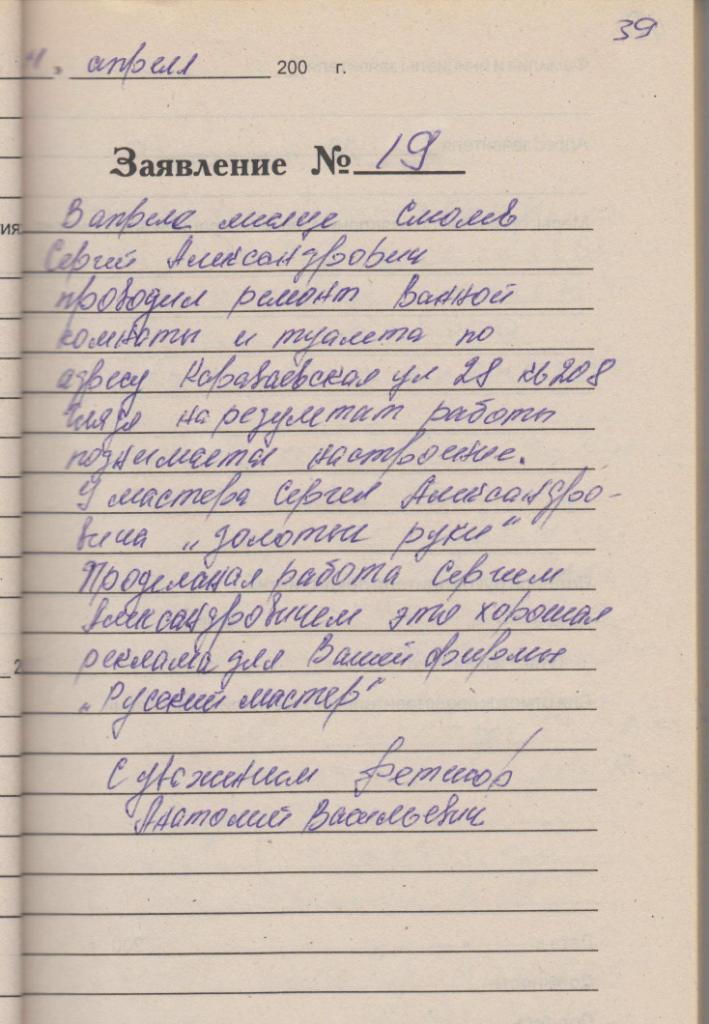 39
апреля 200 г.
Заявление № 19
В апреле месяце Смолев
Сергей Александрович
проводил ремонт ванной
комнаты и туалета по
адресу Караваевская ул 28 кв 208
Глядя на результат работы
поднимается настроение.
У мастера Сергея Александро-
вича „золотые руки“
Проделаная работа Сергеем
Александровичем это хорошая
реклама для Вашей фирмы
„Русский мастер“
С уважением
Анатолий Васильевич